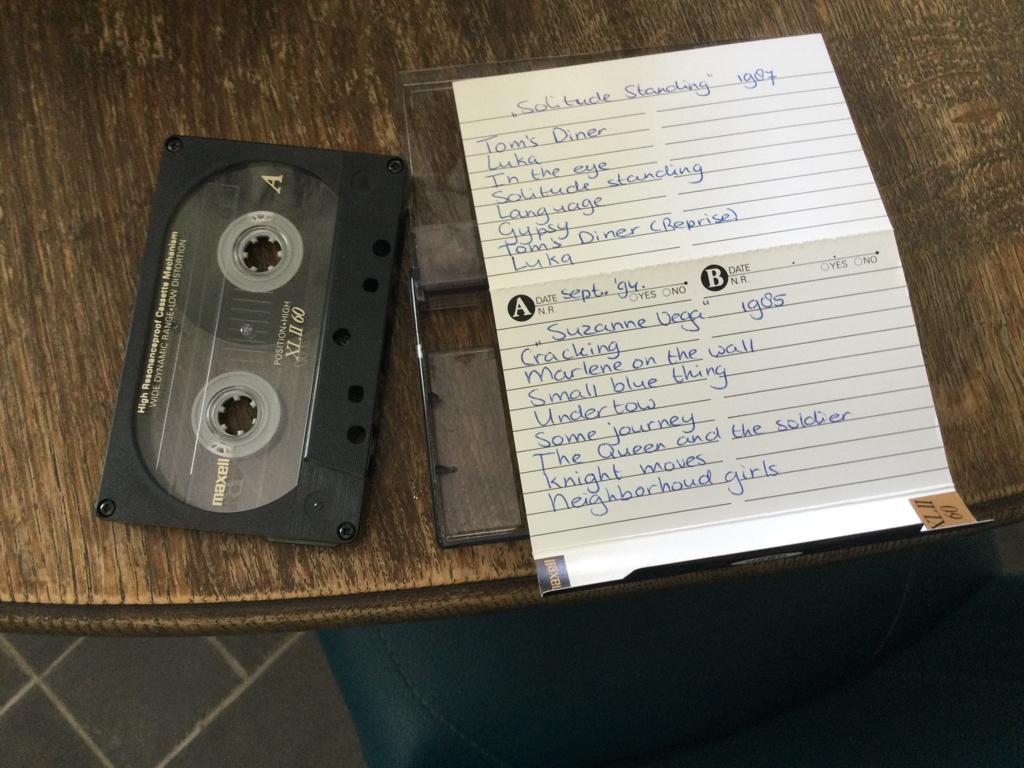 High Resonanceproof Cassette Mechanism
WIDE DYNAMIC RANGE•LOW DISTORTION
A
POSITION•HIGH
XLII 60
maxell
„Solitude Standing" 1987
Tom's Diner
Luka
In the eye
Solitude standing
Language
Gypsy
Tom's Diner (Reprise)
Luka
A DATE sept. '94. N.R. YES NO
B DATE N.R. YES NO
„Suzanne Vega" 1985
Cracking
Marlene on the wall
Small blue thing
Undertow
Some journey
The Queen and the soldier
Knight moves
Neighborhoud girls
maxell
XLII 60